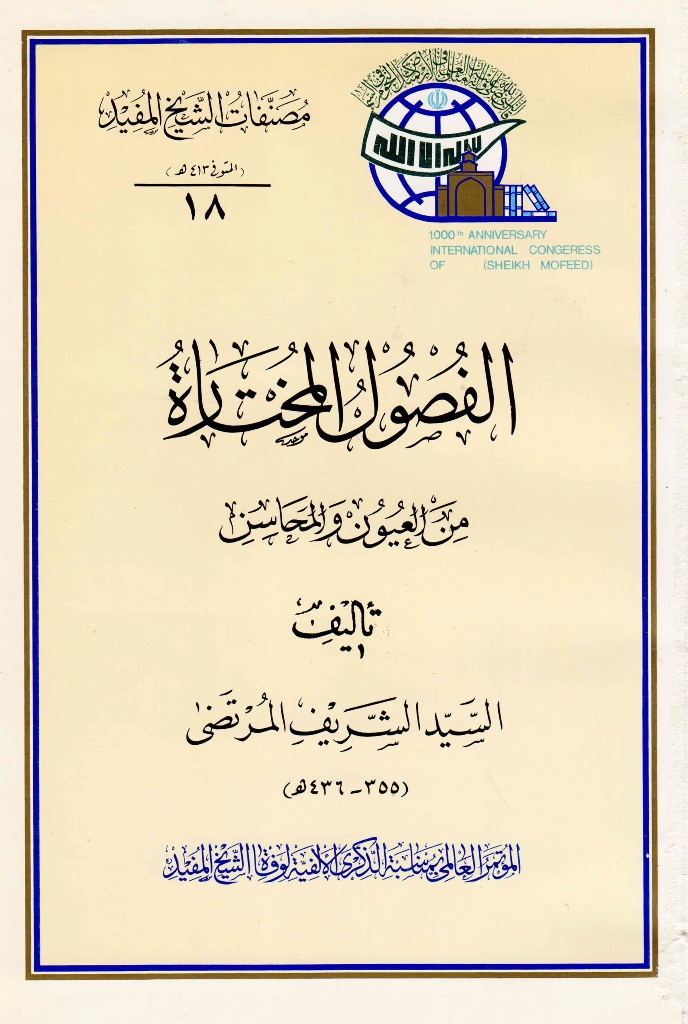 مُصَنَّفَاتُ الشَّيْخِ المُفِيْدِ
(المتوفى ٤١٣ هـ)
١٨
لا إله إلا الله
1000th ANNIVERSARY
INTERNATIONAL CONGERESS
OF (SHEIKH MOFEED)
الفُصُولُ المُخْتَارَةُ
مِنَ العُيُونِ وَالمَحَاسِنِ
تأليف
السَّيِّد الشَّرِيْفِ المُرْتَضىٰ
(٣٥٥ - ٤٣٦ هـ)
المؤتمر العالمي بمناسبة الذكرى الألفية لوفاة الشيخ المفيد